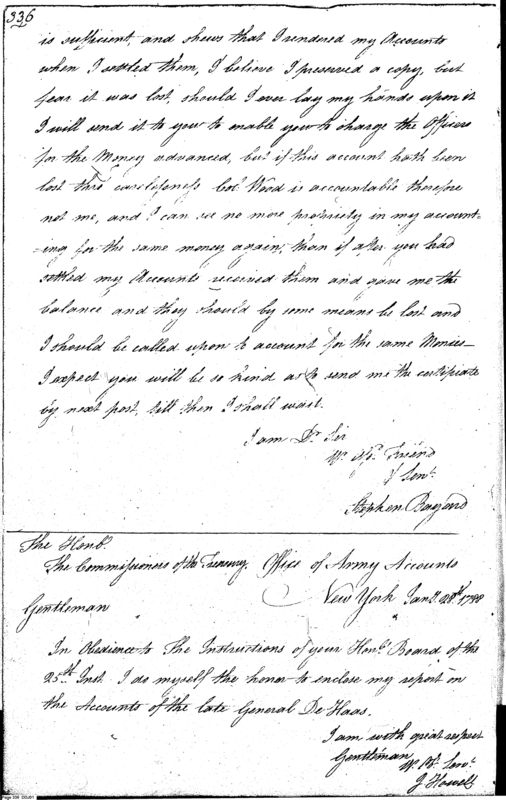 336
is sufficient, and shews that I rendered my Accounts
when I settled them, I believe I preserved a copy, but
fear it was lost, should I ever lay my hands upon it
I will send it to you to enable you to charge the Officers
for the Money advanced, but if this account hath been
lost thro carelessness Col. Wood is accountable therefore
not me, and I can see no more propriety in my account=
=ing for the same money again, than if after you had
settled my Accounts received them and gave me the
balance and they should by some means be lost and
I should be called upon to account for the same Monies
I expect you will be so kind as to send me the certificate
by next post, till then I shall wait.
I am Dr. Sir
Friend
& Servt.
Stephen Bayard
The Honbl.
The Commissioners of the Treasury. Office of Army Accounts
New York Jany. 28th 1788
Gentleman
In Obedience to The Instructions of your Honl. Board of the
25th Inst. I do myself the honor to enclose my report on
the Accounts of the late General De Haas.
I am with great respect
Gentleman
Servt.
J Howell
Page 336